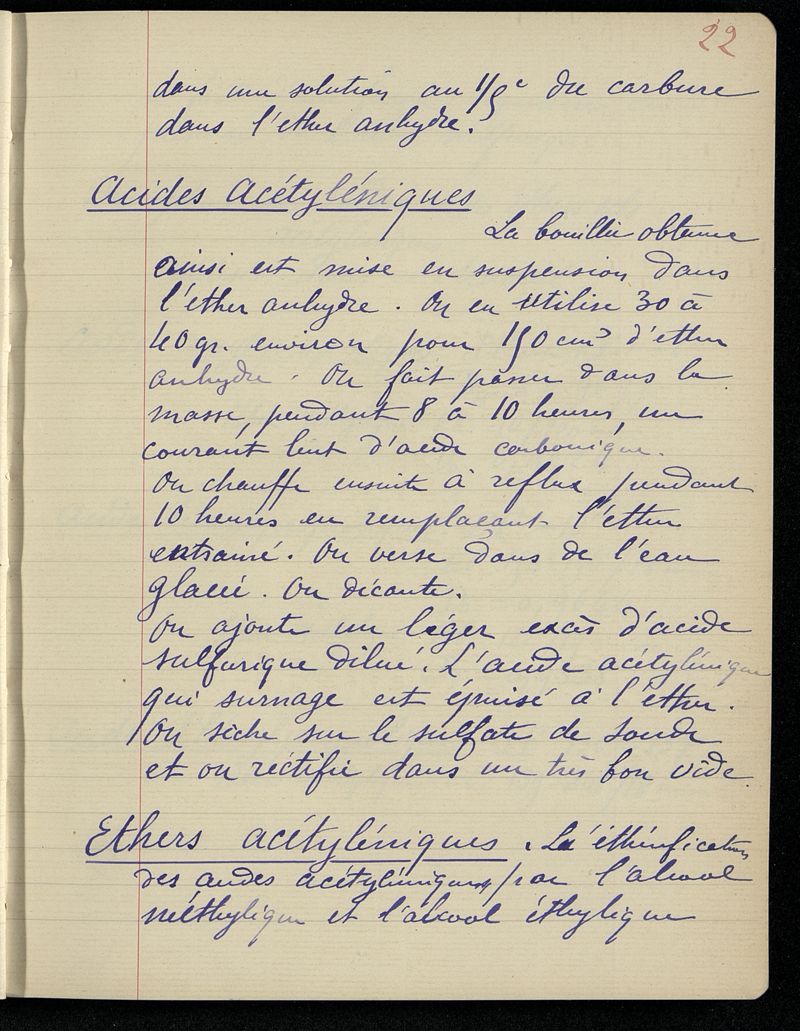 22
dans une solution au 1/5e du carbure
dans l'ether anhydre.
Acides Acétyléniques
La bouillie obtenue
ainsi est mise en suspension dans
l'ether anhydre. On en utilise 30 à
40 gr. environ pour 150 cm3 d'ether
anhydre. On fait passer dans la
masse, pendant 8 à 10 heures, un
courant lent d'acide carbonique.
On chauffe ensuite à reflux pendant
10 heures en remplaçant l'ether
entrainé. On verse dans de l'eau
glacée. On décante.
On ajoute un léger excès d'acide
sulfurique dilué. L'acide acétylénique
qui surnage est épuisé à l'ether.
On sèche sur le sulfate de soude
et on réctifie dans un très bon vide.
Ethers acétyléniques. La éthérification
des acides acétyléniques par l'alcool
méthylique et l'alcool éthylique